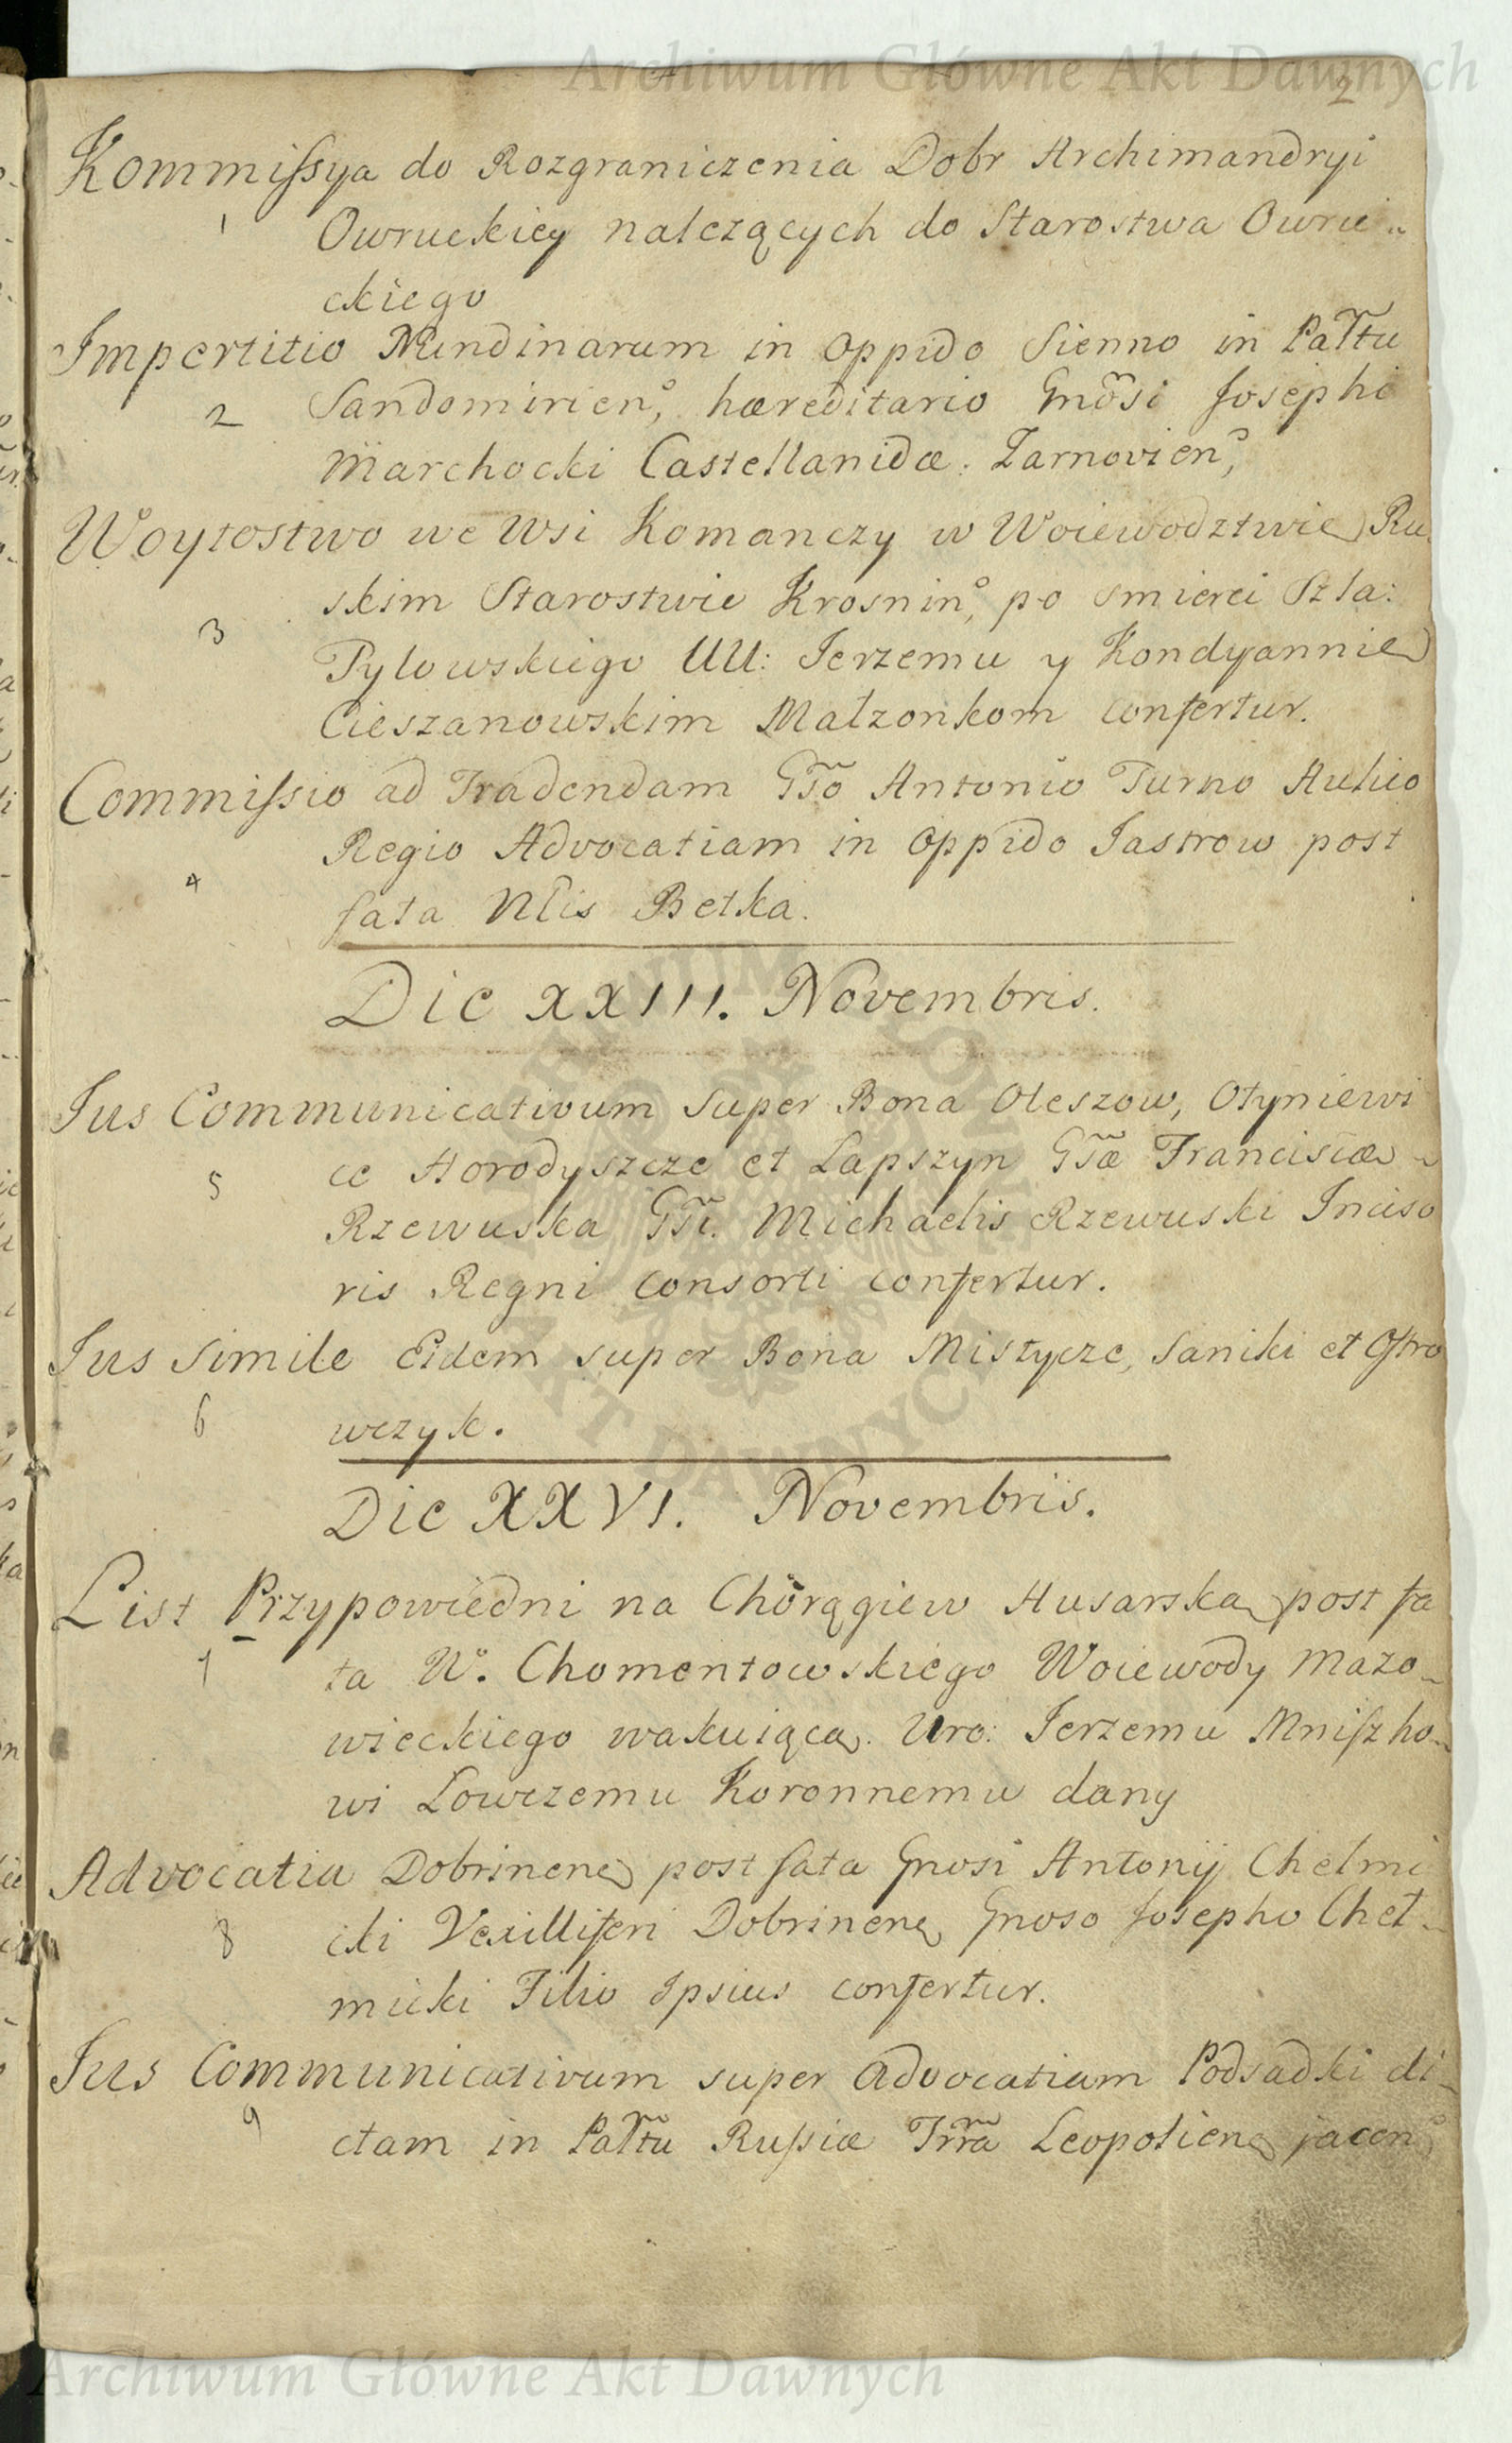 Archiwum Główne Akt Dawnych
2
Kommissya do Rozgraniczenia Dobr Archimandryi
1 Owruckiey nalezących do Starostwa Owru-
ckiego
Impertitio Nundinarum in Oppido Sienno in Palttu
2 Sandomirien, hæreditario Gnosi Josephi
Marchocki Castellanidæ Zarnovien,
Woytostwo we Wsi Komanczy w Woiewodztwie Ru
skim Starostwie Krosnin, po smierci Szla:
3 Pylowskiego UU: Jerzemu y Kondyannie
Cieszanowskim Małzonkom confertur.
Commissio ad Tradendam Gso Antonio Turno Aulico
Regio Advocatiam in Oppido Jastrow post
4 fata Nlis Betka.
Die XXIII. Novembris.
Jus Communicativum super Bona Oleszow, Otyniewi
5 ce Horodyszcze et Lapszyn Gsæ Franciscæ
Rzewuska Gsi. Michaelis Rzewuski Inciso
ris Regni consorti confertur.
Jus Simile Eidem super Bona Mistycze, Saniki et Ostro
6 wczyk.
Die XXVI. Novembris.
List Przypowiedni na Chorągiew Husarską post fa
7 ta W. Chomentowskiego Woiewody Mazo-
wieckiego wakuiącą. Uro: Jerzemu Mniszko-
wi Lowczemu Koronnemu dany
Advocatia Dobrinen post fata Gnosi Antonij Chelmi
8 cki Vexilliferi Dobrinen Gnoso Josepho Cheł-
micki Filio Ipsius confertur.
Jus Communicativum super Advocatiam Podsadki di-
9 ctam in Palttu Russiæ Trra Leopolien jacen
Archiwum Główne Akt Dawnych